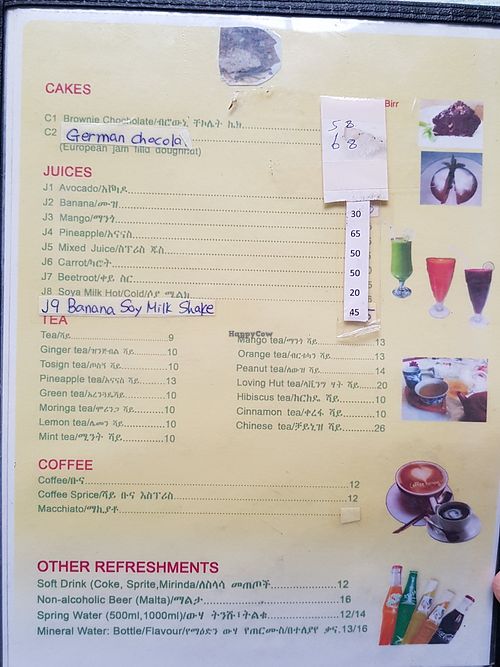 CAKES
Birr
C1 Brownie Chocholate/ብሮውኒ ቸኮሌት ኬክ
58
C2 German chocola
68
(European jam filld doughnat)
JUICES
J1 Avocado/አቮካዶ
J2 Banana/ሙዝ
30
J3 Mango/ማንጎ
65
J4 Pineapple/አናናስ
50
J5 Mixed Juice/ስፕሪስ ጁስ
50
J6 Carrot/ካሮት
20
J7 Beetroot/ቀይ ስር
45
J8 Soya Milk Hot/Cold/ሶያ ሚልክ
J9 Banana Soy Milk Shake
TEA
Tea/ሻይ 9
Ginger tea/ዝንጅብል ሻይ 10
Tosign tea/ጦስኝ ሻይ 10
Pineapple tea/አናናስ ሻይ 13
Green tea/አረንጓዴሻይ 10
Moringa tea/ሞሪንጋ ሻይ 10
Lemon tea/ሎሚ ሻይ 10
Mint tea/ሚንት ሻይ 10
HappyCow
Mango tea/ማንጎ ሻይ 13
Orange tea/ብርቱካን ሻይ 13
Peanut tea/ለውዝ ሻይ 14
Loving Hut tea/ላቪንግ ሃት ሻይ 20
Hibiscus tea/ከርከዴ ሻይ 10
Cinnamon tea/ቀረፋ ሻይ 10
Chinese tea/ቻይኒዝ ሻይ 26
COFFEE
Coffee/ቡና 12
Coffee Sprice/ሻይ ቡና እስፕሪስ 12
Macchiato/ማኪያቶ
OTHER REFRESHMENTS
Soft Drink (Coke, Sprite,Mirinda/ለስላሳ መጠጦች 12
Non-alcoholic Beer (Malta)/ማልታ 16
Spring Water (500ml,1000ml)/ውሃ ትንሹ፣ትልቁ 12/14
Mineral Water: Bottle/Flavour/የማዕድን ውሃ የጠርሙስ/በተለያየ ቃና 13/16